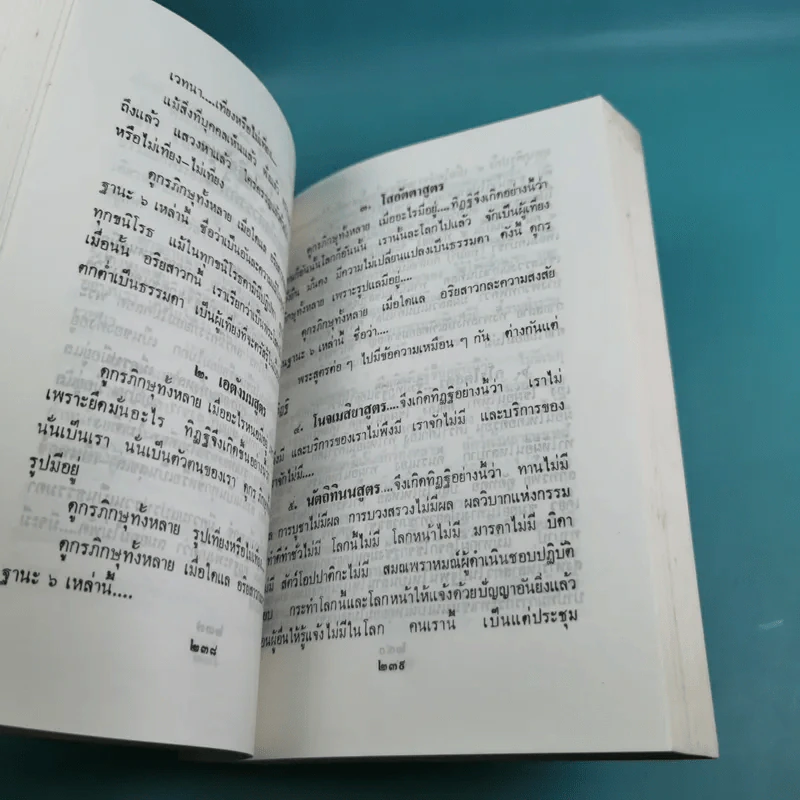 เวทนา....เที่ยงหรือไม่เที่ยง...
แม้สิ่งที่บุคคลเห็นแล้ว
ถึงแล้ว แสวงหาแล้ว
หรือไม่เที่ยง-ไม่เที่ยง
ดูกรภิกษุทั้งหลาย เมื่อใดแล
ฐานะ ๖ เหล่านี้ ชื่อว่าเป็นอันละความ
ทุกขนิโรธ แม้ในทุกขนิโรธคามินีปฏิปทา
เมื่อนั้น อริยสาวกนี้ เราเรียกว่าเป็น
ตกต่ำเป็นธรรมดา เป็นผู้เที่ยงที่จะตรัสรู้
๒. เอตังมมสูตร
ดูกรภิกษุทั้งหลาย เมื่ออะไรหนอมีอยู่
เพราะยึดมั่นอะไร ทิฏฐิจึงเกิดขึ้นอย่างนี้
นั่นเป็นเรา นั่นเป็นตัวตนของเรา ดูกร
รูปมีอยู่
ดูกรภิกษุทั้งหลาย รูปเที่ยงหรือไม่เที่ยง
ดูกรภิกษุทั้งหลาย เมื่อใดแล อริยสาวก
ฐานะ ๖ เหล่านี้....
๒๓๘
๓. โสอัตตาสูตร
ดูกรภิกษุทั้งหลาย เมื่ออะไรมีอยู่....ทิฏฐิจึงเกิดอย่างนี้ว่า
ตนก็อันนั้นโลกก็อันนั้น เรานั้นละโลกไปแล้ว จักเป็นผู้เที่ยง
ยั่งยืน มั่นคง มีความไม่เปลี่ยนแปลงเป็นธรรมดา ดังนี้ ดูกร
ภิกษุทั้งหลาย เพราะรูปแลมีอยู่....
ดูกรภิกษุทั้งหลาย เมื่อใดแล อริยสาวกละความสงสัย
ในฐานะ ๖ เหล่านี้ ชื่อว่า....
พระสูตรต่อ ๆ ไปมีข้อความเหมือน ๆ กัน ต่างกันแต่
ทิฏฐิ
๔. โนจเมสิยาสูตร....จึงเกิดทิฏฐิอย่างนี้ว่า เราไม่
พึงมี และบริการของเราไม่พึงมี เราจักไม่มี และบริการของ
เราจักไม่มี....
๕. นัตถิทินนสูตร....จึงเกิดทิฏฐิอย่างนี้ว่า ทานไม่มี
ผล การบูชาไม่มีผล การบวงสรวงไม่มีผล ผลวิบากแห่งกรรม
ทำดีทำชั่วไม่มี โลกนี้ไม่มี โลกหน้าไม่มี มารดาไม่มี บิดา
ไม่มี สัตว์โอปปาติกะไม่มี สมณพราหมณ์ผู้ดำเนินชอบปฏิบัติ
ชอบ กระทำโลกนี้และโลกหน้าให้แจ้งด้วยปัญญาอันยิ่งแล้ว
สอนผู้อื่นให้รู้แจ้งไม่มีในโลก คนเรานี้ เป็นแต่ประชุม
๒๓๙